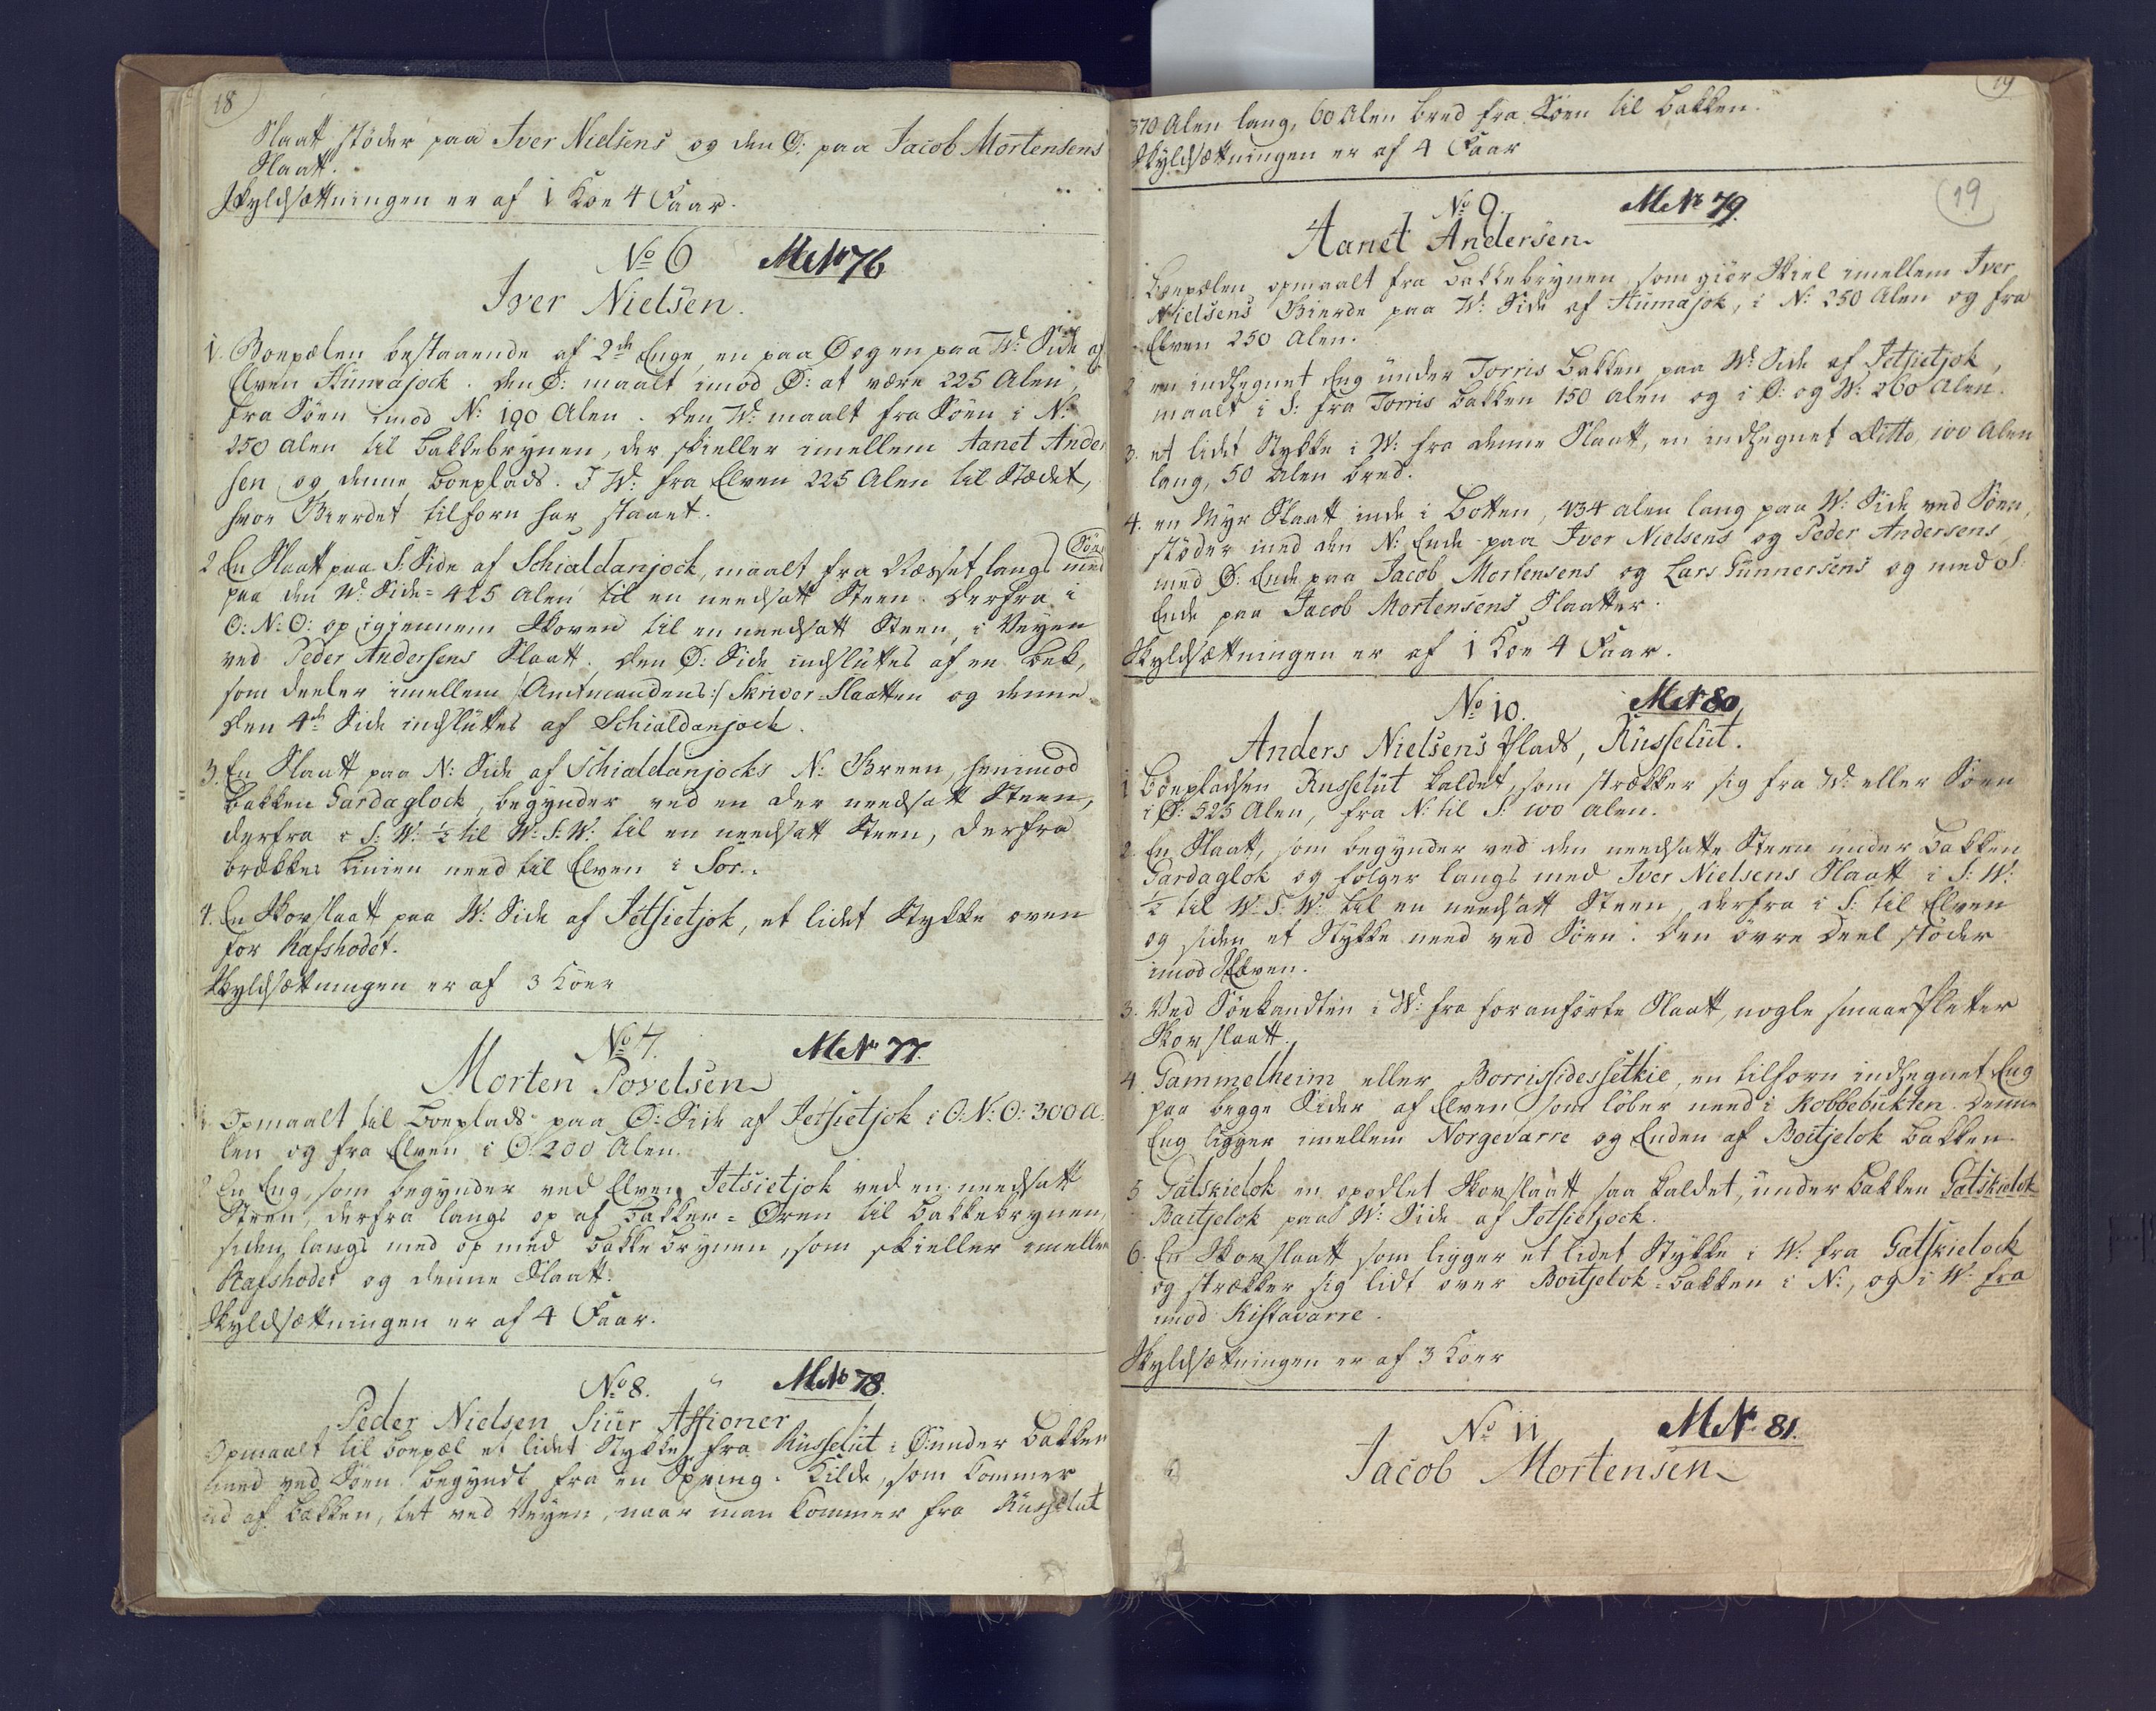 18
Slaatt støder paa Iver Nielsens og den Ø: paa Jacob Mortensens
Slaatt.
Skyldsættningen er af 1 Koe 4 Faar.
No 6 M.No 76
Iver Nielsen.
1. Boepælen bestaaende af 2de Enge, en paa Ø og en paa Wd. Side af
Elven Humajock. den Ø: maalt imod Ø: at være 225 Alen,
fra Søen imod N: 190 Alen. den Wd: maalt fra Søen i N:
250 Alen til Bakkebrynen, der skieller imellem Aanet Ander
sen og denne Boeplads. I Wd: fra Elven 225 Alen til Stædet,
hvor Gierdet tilforn har staaet.
2 En Slaatt paa S: Side af Schialdanjock, maalt fra Næsset langs med Søen
paa den Wd: Side = 425 Alen til en needsatt Steen. Derfra i
O:N:O: op igiennem Skoven til en needsatt Steen, i Veyen
ved Peder Andersens Slaatt. Den Ø: Side indsluttes af en Bek,
som deeler imellem /:Amtmandens:/ Skriver-Slaatten og denne
den 4de Side indsluttes af Schialdanjock.
3. En Slaatt paa N: Side af Schialdanjocks N: Green, henimod
Bakken Gardaglock, begynder ved en der needsatt Steen,
derfra i S:W: ½ til W:S:W: til en needsatt Steen, derfra
brækkes Linien need til Elven i Sør.
4. En Skovslaatt paa W: Side af Jetsietjok, et lidet Stykke oven
for Rafshodet.
Skyldsættningen er af 3 Köer
No 7. M.No 77.
Morten Povelsen
1. Opmaalt til Boeplads paa Ø: Side af Jetsietjok i O:N:O: 300 A.
len og fra Elven i Ø: 200 Alen.
2 En Eng, som begynder ved Elven Jetsietjok ved en needsatt
Steen, derfra langs op af Bakken = Øren til Bakkebrynen,
siden langs med op med Bakkebrynen, som skieller imellem
Rafshodet og denne Slaatt.
Skyldsættningen er af 4 Faar.
No 8. M.No 78.
Peder Nielsen Siur Assioner
Opmaalt til Boepæl et lidet Stykke fra Russelut i Ø: under Bakken
need ved Søen. begyndt fra en Spring-Kilde, som kommer
ud af Bakken, tet ved Veyen, naar man kommer fra Russelut
19
370 Alen lang, 60 Alen bred fra Søen til Bakken.
Skyldsættningen er af 4 Faar
19
No 9. M.No 79.
Aanet Andersen.
1. Boepælen opmaalt fra Bakkebrynen som giør Skiel imellem Iver
Nielsens Gierde paa Wd: Side af Humajok, i N: 250 Alen og fra
Elven 250 Alen.
2 en indhegnet Eng under Torris Bakken paa Wd: Side af Jetsietjok,
maalt i S: fra Torris Bakken 150 Alen og i Ø: og W: 260 Alen.
3. et lidet Stykke i W: fra denne Slaatt, en indhegnet Ditto, 100 Alen
lang, 50 Alen bred.
4. en Myr Slaatt inde i Botten, 434 Alen lang paa W: Side ved Søen,
støder med den N: Ende paa Iver Nielsens og Peder Andersens,
med Ø: Ende paa Jacob Mortensens og Lars Gunnersens og med S:
Ende paa Jacob Mortensens Slaatter.
Skyldsættningen er af 1 Koe 4 Faar.
No 10. M.No 80
Anders Nielsens Plads, Russelut.
1 Boepladsen Russelut kaldet, som strækker sig fra Wd: eller Søen
i Ø: 525 Alen, fra N: til S: 100 Alen.
2. En Slaatt, som begynder ved den needsatte Steen under Bakken
Gardaglok og følger langs med Iver Nielsens Slaatt i S:W:
½ til W:S:W: til en needsatt Steen, derfra i S: til Elven
og siden et Stykke need ved Søen. Den övre Deel støder
imod Elven.
3. Ved Søekandten i Wd: fra foranførte Slaatt, nogle smaae Pletter
Skovslaatt.
4. Gammelheim eller Borrissidessetkie, en tilforn indhegnet Eng
paa begge Sider af Elven som løber need i Kobbebukten. Denne
Eng ligger imellem Norgevarre og Enden af Boitjelok Bakken.
5 Gatskielok en opodlet Skovslaatt saa kaldet, under Bakken Gatskielok
Baitjelok paa W: Side af Jetsietjock.
6. En Skovslaatt som ligger et lidet Stykke i W: fra Gatskielock
og strækker sig lidt over Boitjelok-Bakken i N:, og i W: fra
imod Kistavarre.
Skyldsættningen er af 3 Køer
No 11 M.No 81.
Jacob Mortensen